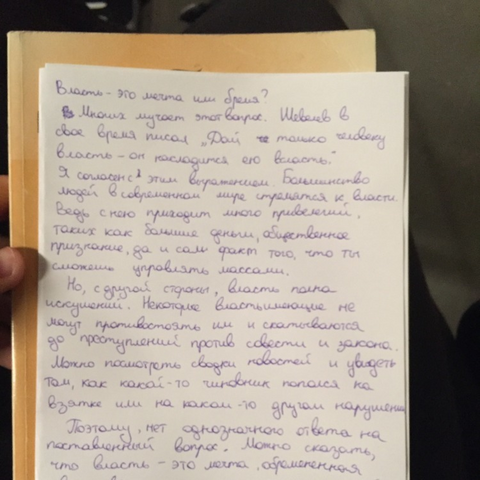 Власть - это мечта или бремя?
Многих мучает этот вопрос. Шевелев в
свое время писал „Дай же только человеку
власть - он насладится ею всласть."
Я согласен с этим выражением. Большинство
людей в современном мире стремятся к власти
Ведь с нею приходит много привелегий,
таких как большие деньги, общественное
признание, да и сам факт того, что ты
сможешь управлять массами.
Но, с другой стороны, власть полна
искушений. Некоторые властьимеющие не
могут противостоять им и скатываются
до преступлений против совести и закона.
Можно посмотреть сводки новостей и увидеть
там, как какой-то чиновник попался на
взятке или на каком-то другом нарушении
Поэтому, нет однозначного ответа на
поставленный вопрос. Можно сказать,
что власть - это мечта, обремененная